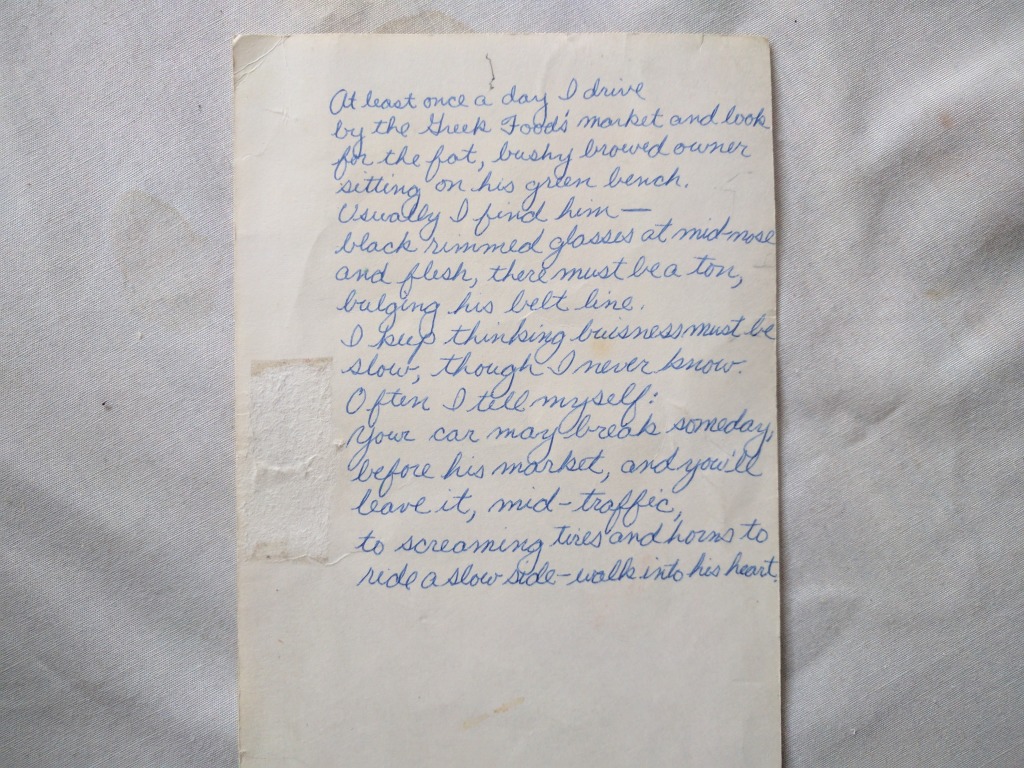 At least once a day I drive
by the Greek Foods' market and look
for the fat, bushy browed owner
sitting on his green bench.
Usually I find him—
black rimmed glasses at mid-nose
and flesh, there must be a ton,
bulging his belt line.
I keep thinking buisness must be
slow, though I never know.
Often I tell myself:
your car may break someday,
before his market, and you'll
leave it, mid-traffic,
to screaming tires and horns to
ride a slow side-walk into his heart.